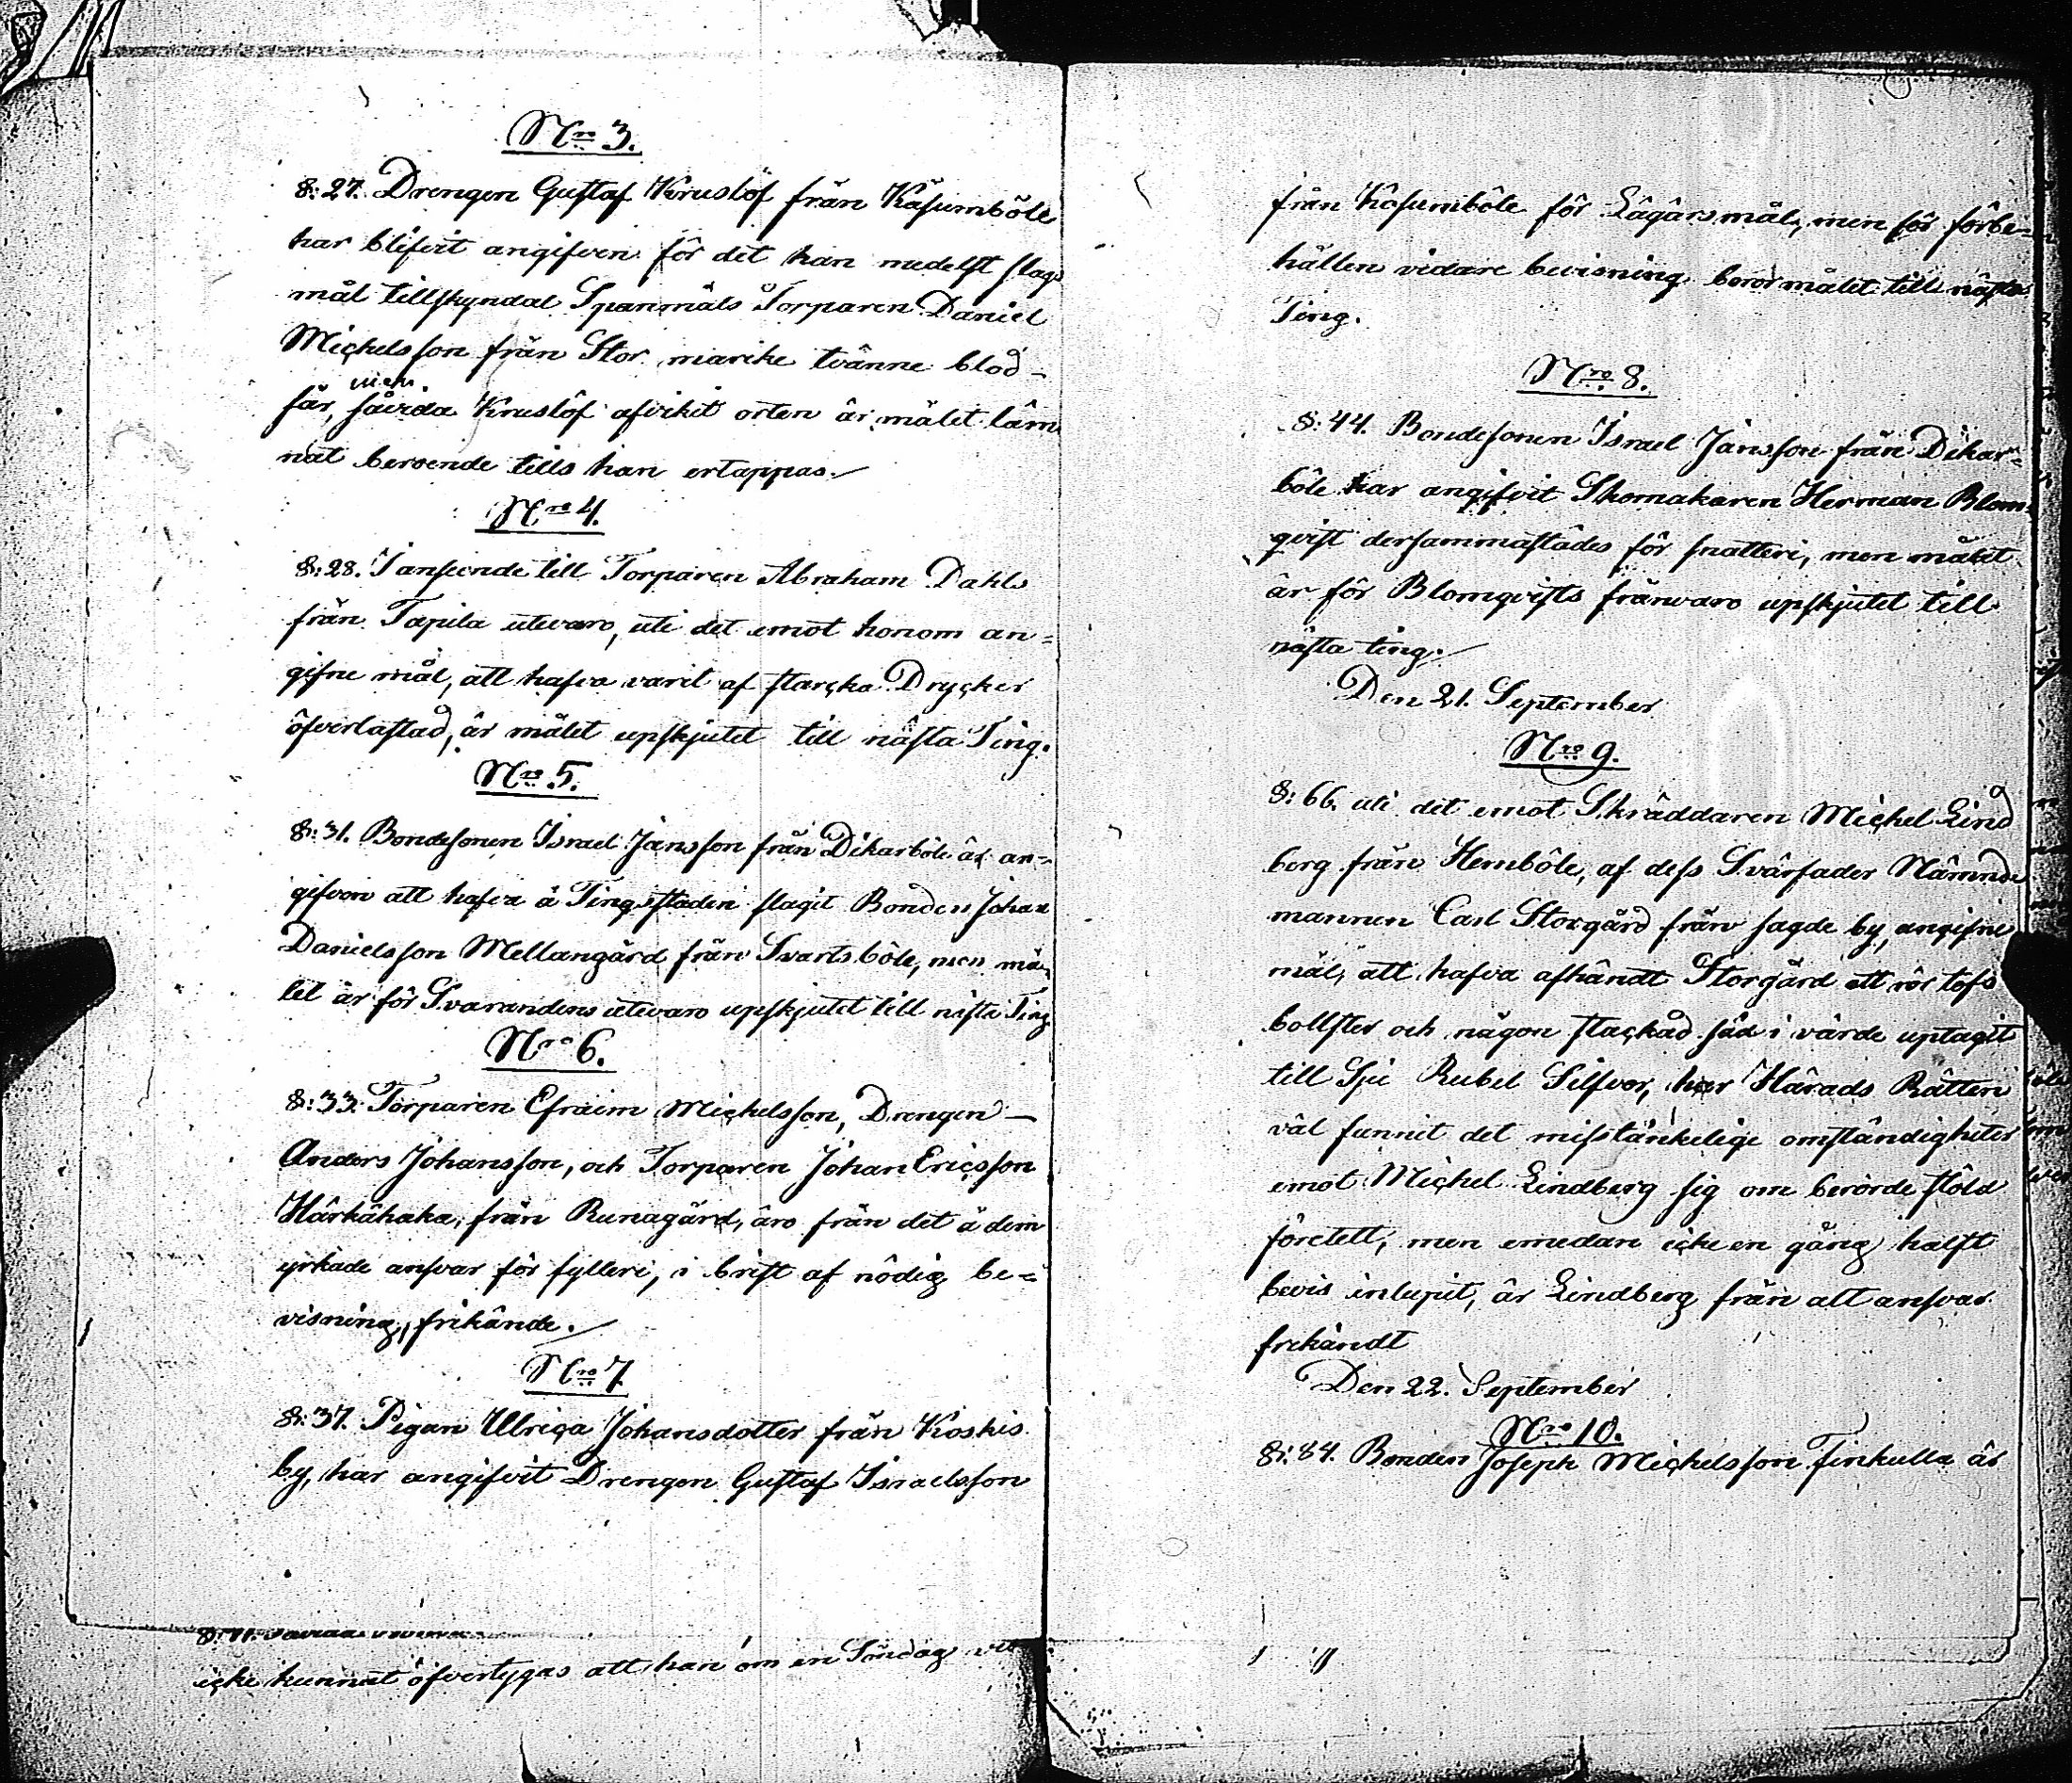 Nro 3.
§: 27. Drengen Gustaf Kruslöf från Käsumböle
har blifvit angifven för det han medelst slags
mål tillskyndat Spanmäls Torparen Daniel
Michelsson från Stor marike tvänne blod-
sår, men såvida Kruslöf afvikit orten är målet läm
nat beroende tills han ertappas.
Nro 4.
§: 28. I anseende till Torparen Abraham Dahls
från Tapila utevaro, uti det emot honom an=
gifne mål, att hafva varit af starcka Drycker
öfverlastad, är målet upskjutet till nästa Ting.
Nro 5.
§: 31. Bondesonen Israel Jansson från Dikarböle är an-
gifven att hafva å Tingsstaden slagit Bonden Johan
Danielsson Mellangård från Svartsböle, men må=
let är för Svarandens utevaro upskjutet till nästa Ting
Nro 6.
§: 33. Torparen Efraim Michelsson, Drengen
Anders Johansson, och Torparen Johan Ericsson
Härkähaka, från Runagård, äro från det å dem
yrkade ansvar för fylleri, i brist af nödig be=
visning, frikände.
Nro 7
§: 37. Pigan Ulrica Johansdotter från Koskis
by, har angifvit Drengen Gustaf Israelsson
icke kunnat öfvertygas att han om en Söndag
från Käsumböle för Lägärsmål, men för förbe=
hållen vidare bevisning beror målet till nästa
Ting.
Nro 8.
§: 44. Bondesonen Israel Jansson från Dikar=
böle har angifvit Skomakaren Herman Blom=
qvist dersammastädes för snatteri, men målet
är för Blomqvists frånvaro upskjutet till
nästa ting.
Den 21. September
Nro 9.
§: 66. uti det emot Skräddaren Michel Lind
berg från Hemböle, af dess Svärfader Nämnde
mannen Carl Storgård från sagde by, angifne
mål, att hafva afhändt Storgård ett rör tofs
bollster och någon stackad säd i värde uptagit
till Sju Rubel Silfver, har Härads Rätten
väl funnit det misstänkelige omständigheter
emot Michel Lindberg sig om berörde stöld
företett, men emedan icke en gång halft
bevis inlupit, är Lindberg från alt ansvar
frikändt
Den 22. September
Nro 10.
§: 84. Bonden Joseph Michelsson Finkulla är